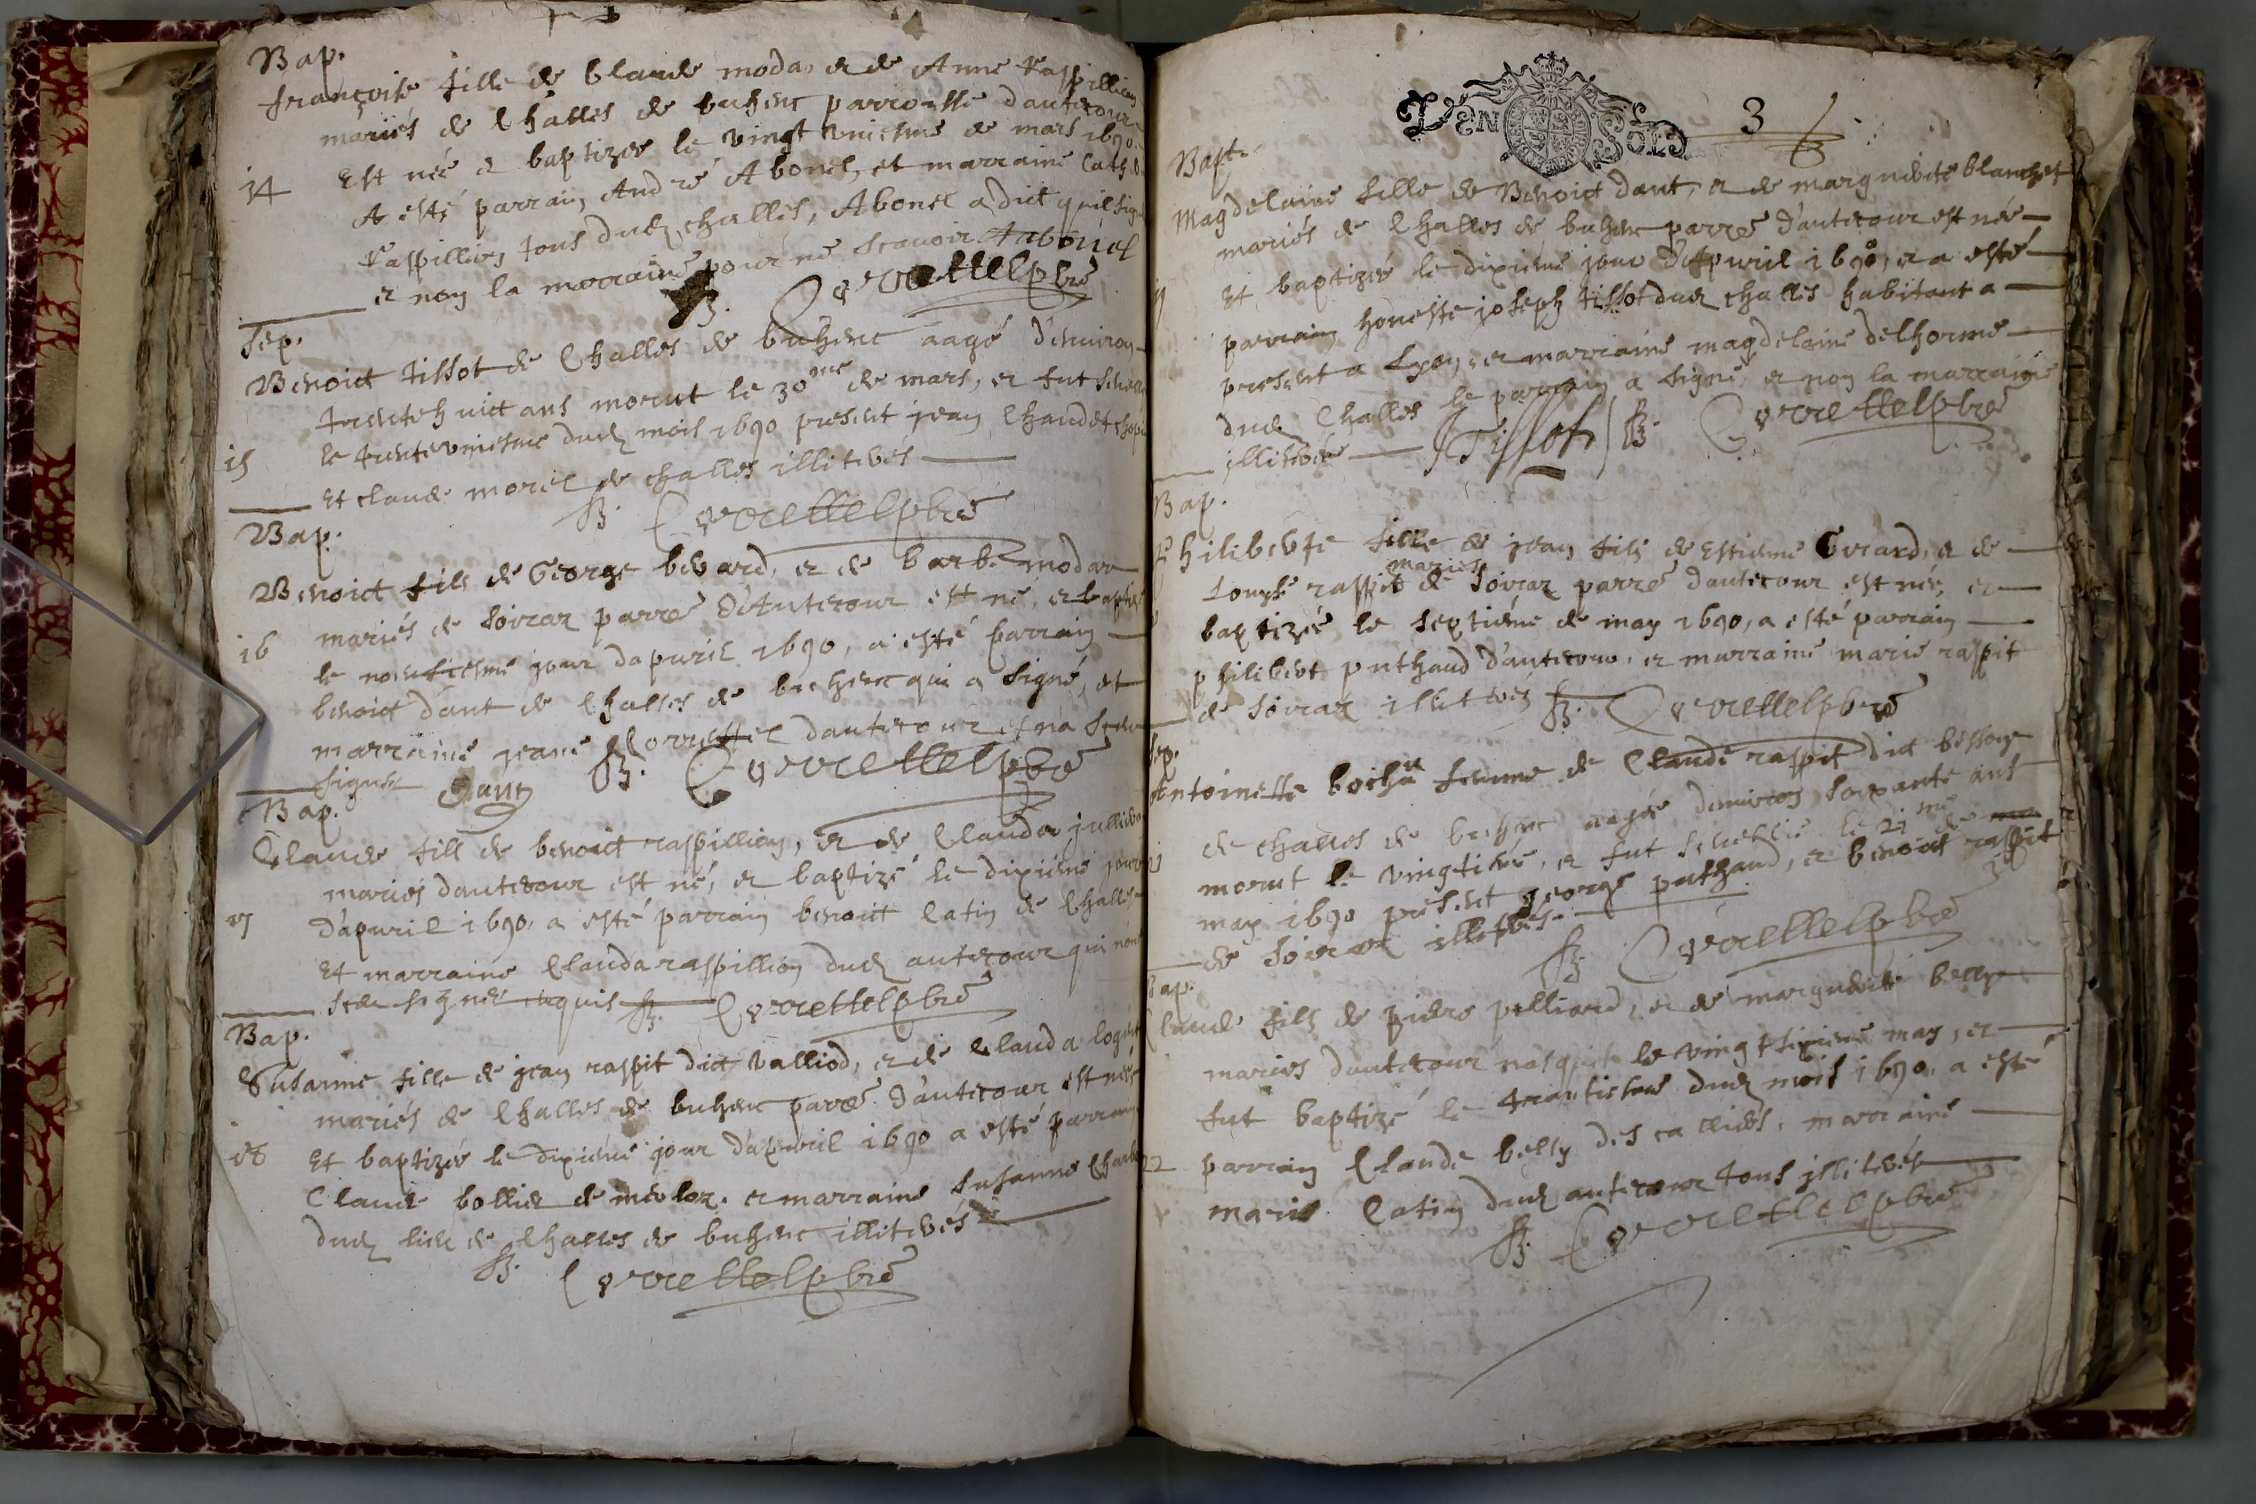 Bap.
françoise fille de Claude moda, et de Anne raspillion
mariés de Challes de buhenc parroisse dautecour
14
Est née et baptizée le vingt uniesme de mars 1690.
A esté parrain André Abonel, et marraine
raspillion tous dud challes, Abonel a dict
et non la marraine pour ne scavoir
B. Correttel pbre
Sep.
Benoict tissot de Challes de buhenc aagé d'environ
trentehuict ans morut le 30 de mars, et fut
le trenteuniesme dud mois 1690 present jean
15
Et claude morel de challes illiterés
B. Correttel pbre
Bap.
Benoict fils de George berard, et de barbe modar
mariés de soiraz parre d'Autecour est né, et
16
le neufiesme jour dapuril 1690, a esté parrain
benoict dant de Challes de buhenc qui a signé, et
marraine jeane Correttel dautecour
signer Dant B. Correttel pbre
Bap.
Claude fill de benoict raspillion, et de Clauda
mariés dautecour est né, et baptizé le dixieme jour
17
d'apuril 1690, a esté parrain benoict Catin de Challes
Et marraine Clauda raspillion dud autecour qui
requis B. Correttel pbre
Bap.
Susanne fille de jean raspit dict valliod, et de Clauda
mariés de Challes de buhenc parre d'autecour est née
18
Et baptizée le dixieme jour d'apuril 1690 a esté parrain
Claude bollier de et marraine Susanne
dud lieu de Challes de buhenc illiterés
B. Correttel pbre
VEN SOLS 3
Bapt.
Magdelaine fille de Benoict dant, et de marguerite blanchet
mariés de Challes de buhenc parre d'autecour est née
Et baptizée le dixieme jour d'Apuril 1690, et a esté
parrain honeste joseph tissot dud challes habitant a
present a Lyon, et marraine magdelaine delhorme
dud Challes le parrain a signé et non la marraine
illiterée JTissot B. Correttel pbre
Bap.
Philiberte fille de jean fils de Estienne Gerard, et de
mariés
raspit de soiraz parre d'autecour est née, et
baptizée le septieme de may 1690, a esté parrain
philibert puthaud d'autecour, et marraine marie raspit
de soiraz illiterés B. Correttel pbre
Sep.
Antoinette femme de Claude raspit dict
de challes de buhenc aagée denviron soixante ans
morut le vingtieme, et fut sevelie le 21 me de
may 1690 present george puthaud, et benoict raspit
de soiraz illiterés
B. Correttel pbre
Bap.
Claude fils de pierre pilliard, et de marguerite belly
mariés dautecour nasquit le vingtsixieme may, et
fut baptizé le trantiesme dud mois 1690, a esté
22
parrain Claude belly des marraine
marie Catin dud autecour tous illiterés
B. Correttel pbre